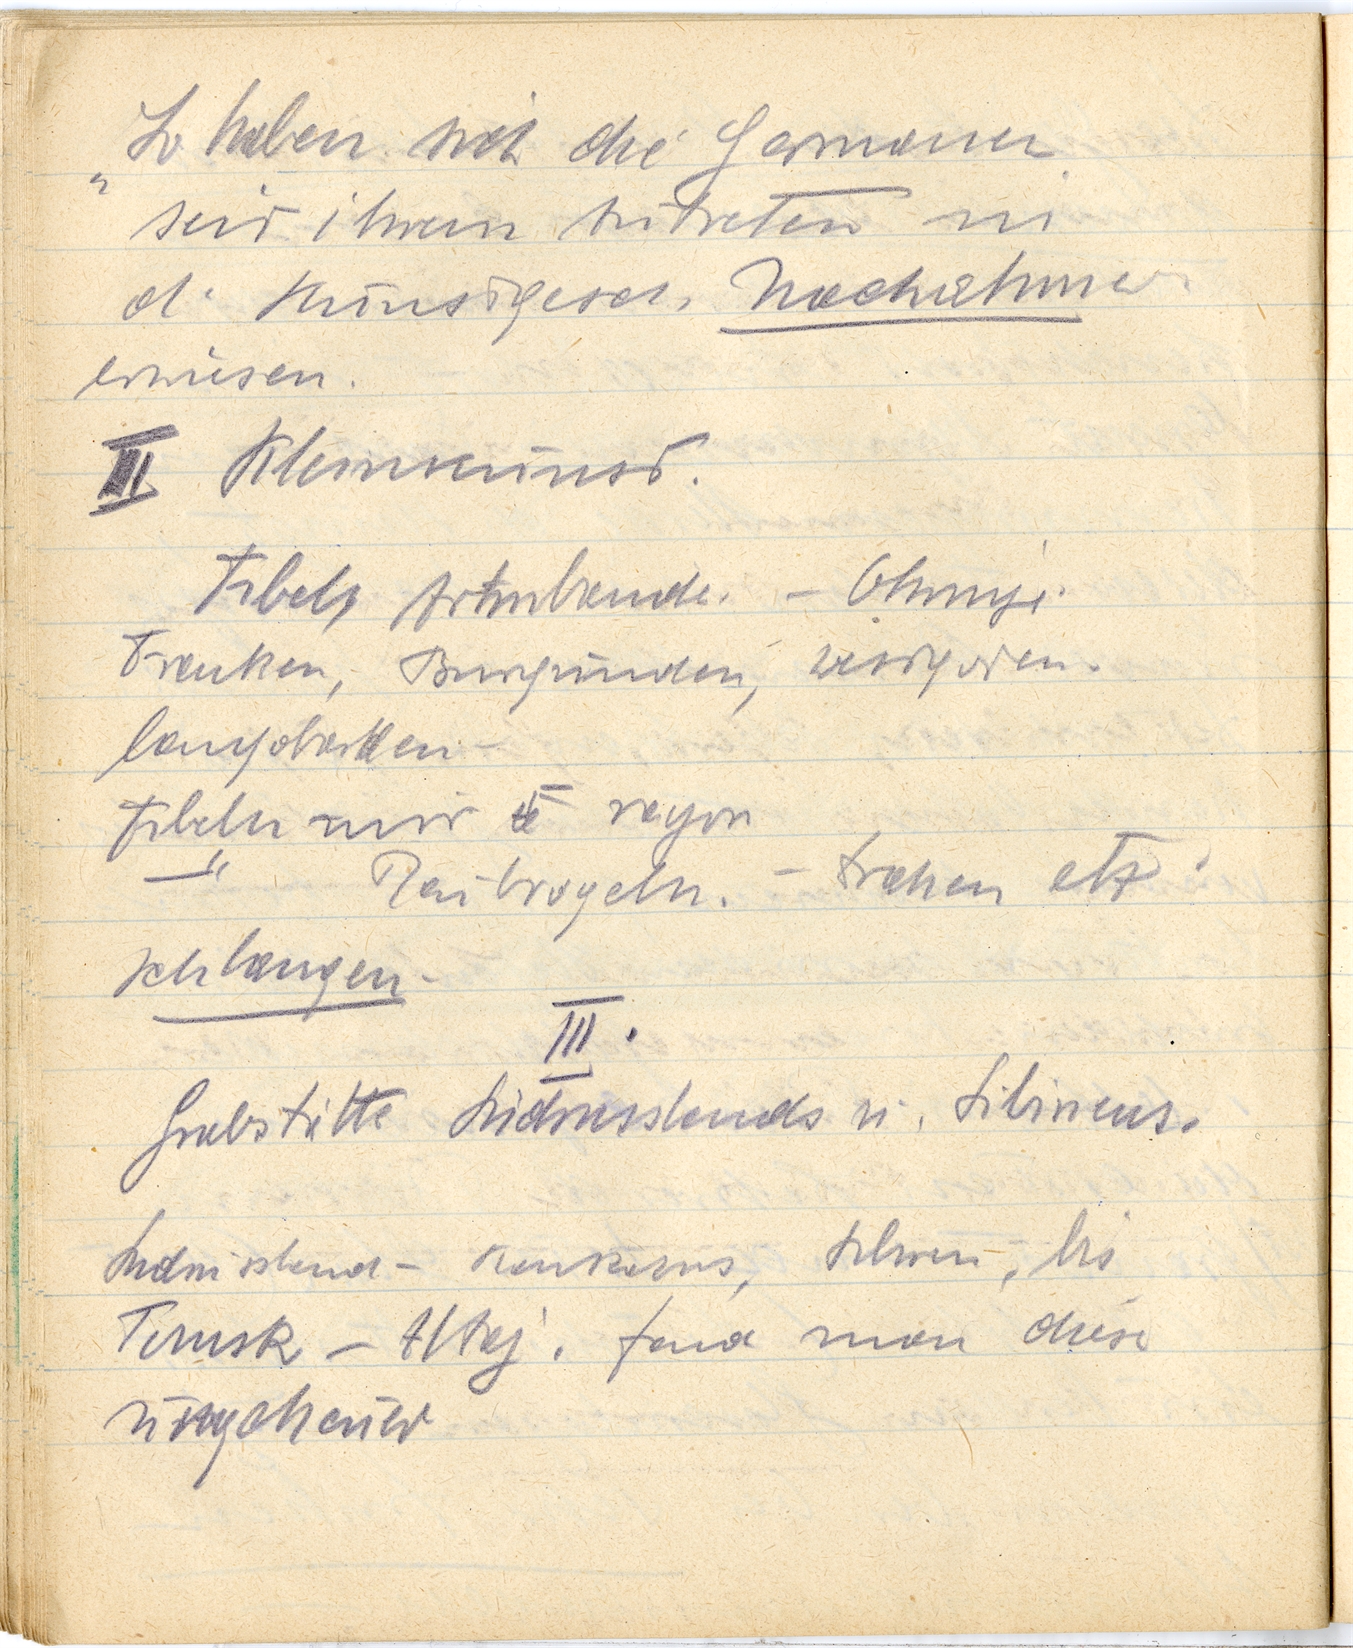 „So haben sich die Germanen
seit ihrem Auftreten in
d. Kunstgesch. Nachahmer
erwiesen.
II Kleinkunst.
Fibeln Armbande. – Ohrringe
Franken, Burgunden, Westgoten.
Langobarden –
Fibeln mit
–"– Raubvogeln. – Drachen etz.
Schlangen –
III.
Grabstätte Südrusslands u. Sibiriens.
Südrussland – Kaukasus, bis
Tomsk – Altaj. fand man diese
Ungeheuer